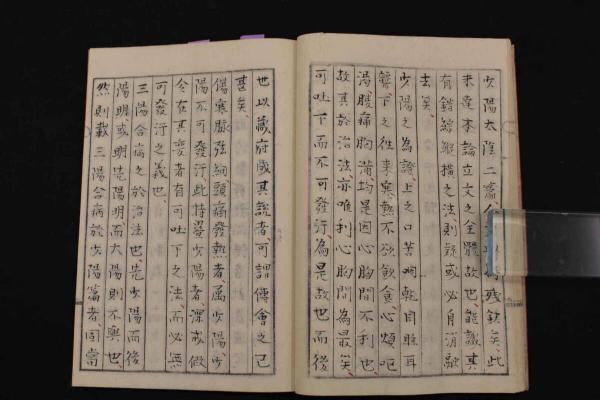 少陽太陰二篇人 為殘欽矣此
未達本論立文之全體故也能識其
有錯綜縱橫之法則疑或必自消融
去矣
少陽之為證上之口苦咽乾目眩耳
聾下之往來寒熱不欲飲食心煩嘔
渴腹痛胸滿均是因心胸間不利也
故其於治法亦唯利心胸間為最矣
可吐下而不可發汗為是故也而後
世以藏府成其說者可謂傅會之已
甚矣
傷寒脈弦細頭痛發熱者屬少陽少
陽不可發汗此特舉少陽者深戒做
令在其變者有可吐下之法而必無
可發汗之義也
三陽合病之於治法也先少陽而後
陽明或明先陽明而太陽則不與也
然則載三陽合病於少陽篇者固當